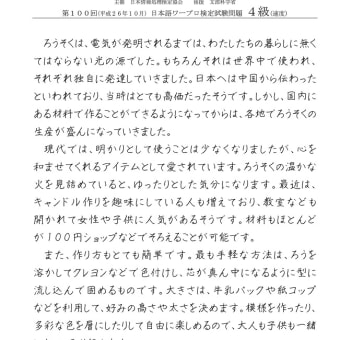 主催 日本情報処理検定協会 後援 文部科学省
第100回(平成26年10月) 日本語ワープロ検定試験問題 4級(速度)
ろうそくは、電気が発明されるまでは、わたしたちの暮らしに無く
てはならない光の源でした。もちろんそれは世界中で使われ、
それぞれ独自に発達していきました。日本へは中国から伝わった
といわれており、当時はとても高価だったそうです。しかし、国内に
ある材料で作ることができるようになってからは、各地でろうそくの
生産が盛んになっていきました。
現代では、明かりとして使うことは少なくなりましたが、心を
和ませてくれるアイテムとして愛されています。ろうそくの温かな
火を見詰めていると、ゆったりとした気分になります。最近は、
キャンドル作りを趣味にしている人も増えており、教室なども
開かれて女性や子供に人気があるそうです。材料もほとんど
が100円ショップなどでそろえることが可能です。
また、作り方もとても簡単です。最も手軽な方法は、ろうを
溶かしてクレヨンなどで色付けし、芯が真ん中になるように型に
流し込んで固めるものです。大きさは、牛乳パックや紙コップ
などを利用して、好みの高さや太さを決めます。模様を作ったり、
多彩な色を層にしたりして自由に楽しめるので、大人も子供も一緒